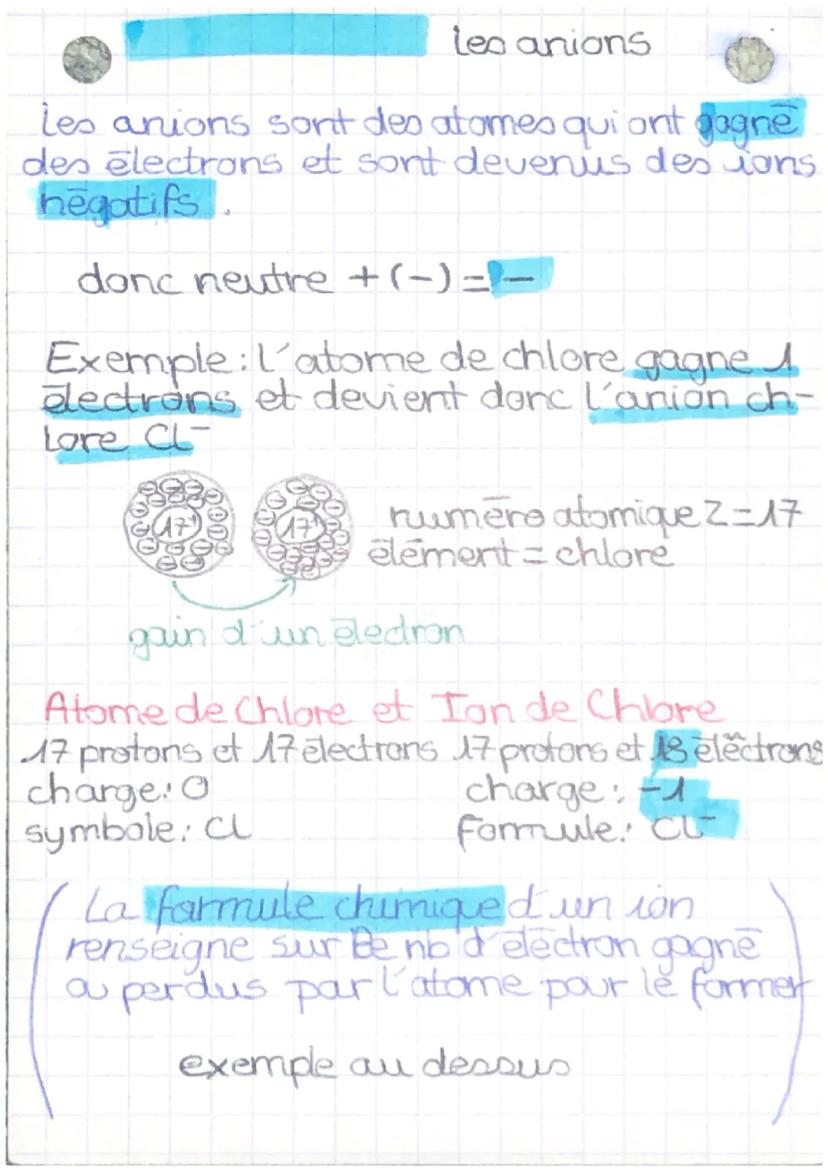 les anions
Les anions sont des atomes qui ont gagné
des électrons et sont devenus des ions
négatifs.
donc neutre + (-) = -
Exemple : l'atome de chlore gagne 1
électrons et devient donc l'anion ch-
lore Cl⁻
17 17 numéro atomique Z=17
élément = chlore
gain d'un électron
Atome de Chlore et Ion de Chlore
17 protons et 17 électrons 17 protons et 18 électrons
charge : 0 charge : -1
symbole : Cl formule : Cl⁻
La formule chimique d'un ion
renseigne sur le nb d'électron gagné
ou perdus par l'atome pour le former
exemple au dessus